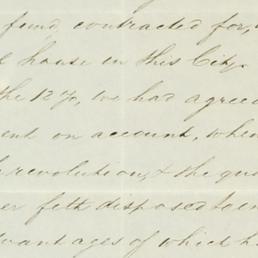 fund, contracted for,
house in this City.
the 12%, we had agreed
ent on account, when
revolution, & the
er felt disposed to
vantages of which h